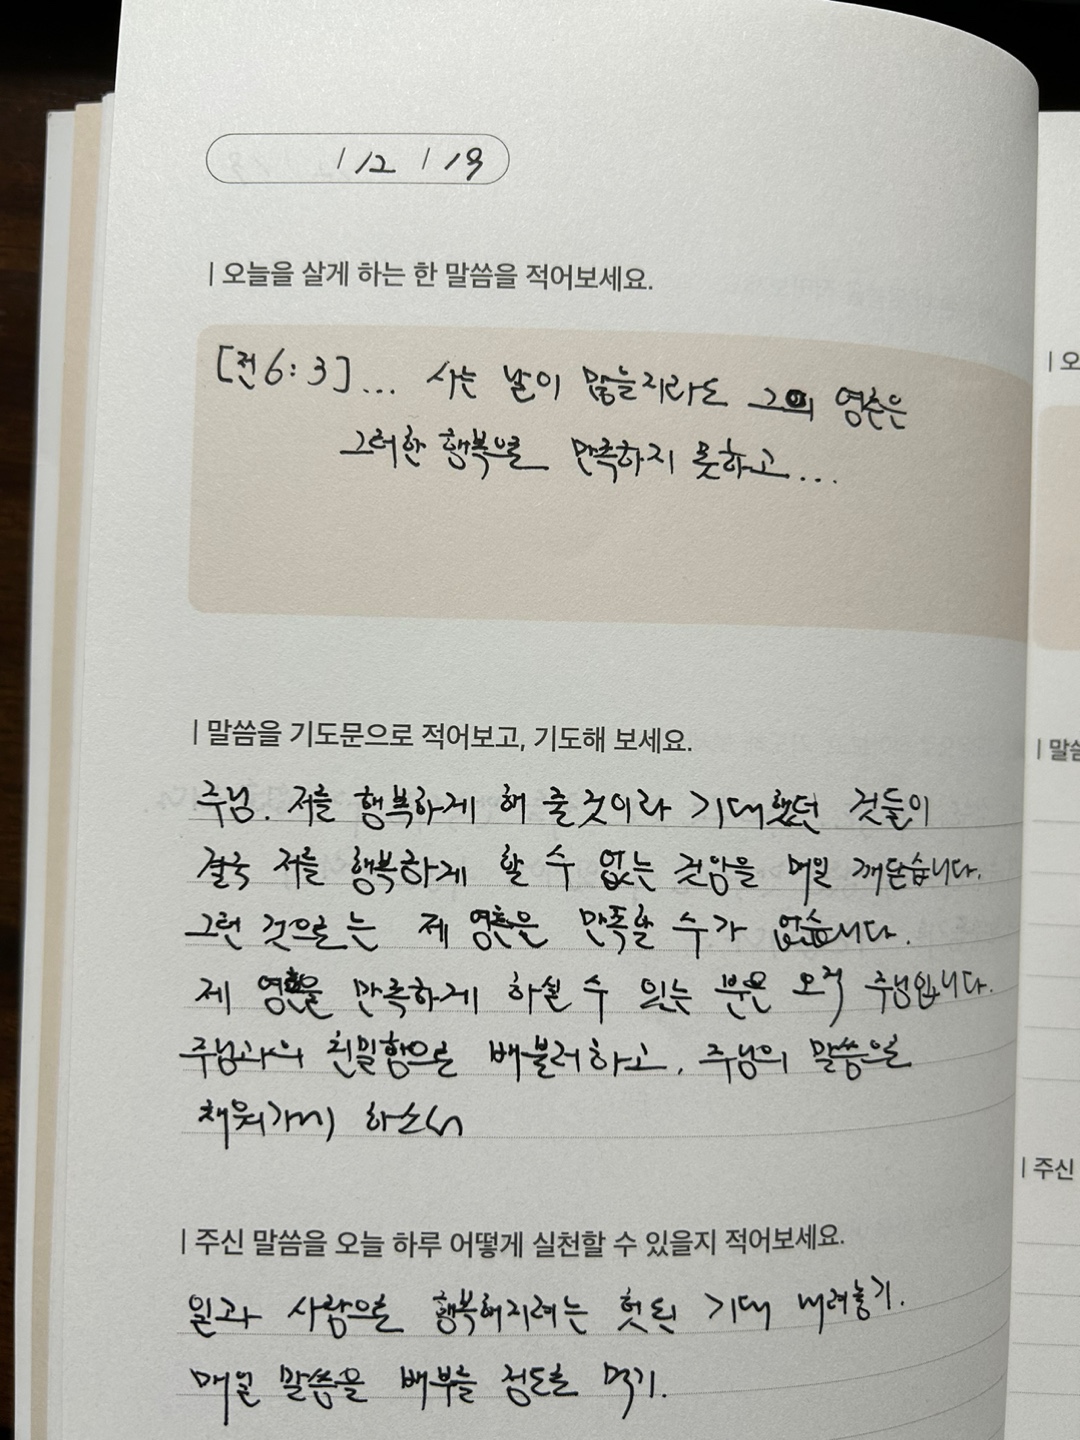 / 12 / 19
| 오늘을 살게 하는 한 말씀을 적어보세요.
[전6:3]... 사는 날이 많을지라도 그의 영혼은
그러한 행복으로 만족하지 못하고...
| 말씀을 기도문으로 적어보고, 기도해 보세요.
주님. 저를 행복하게 해 줄 것이라 기대했던 것들이
결국 저를 행복하게 할 수 없는 것임을 매일 깨닫습니다.
그런 것으로는 제 영혼은 만족할 수가 없습니다.
제 영혼을 만족하게 하실 수 있는 분은 오직 주님입니다.
주님과의 친밀함으로 배불러하고, 주님의 말씀으로
채워가게 하소서
| 주신 말씀을 오늘 하루 어떻게 실천할 수 있을지 적어보세요.
일과 사람으로 행복해지려는 헛된 기대 내려놓기.
매일 말씀을 배부를 정도로 먹기.
| 오
| 말씀
| 주신